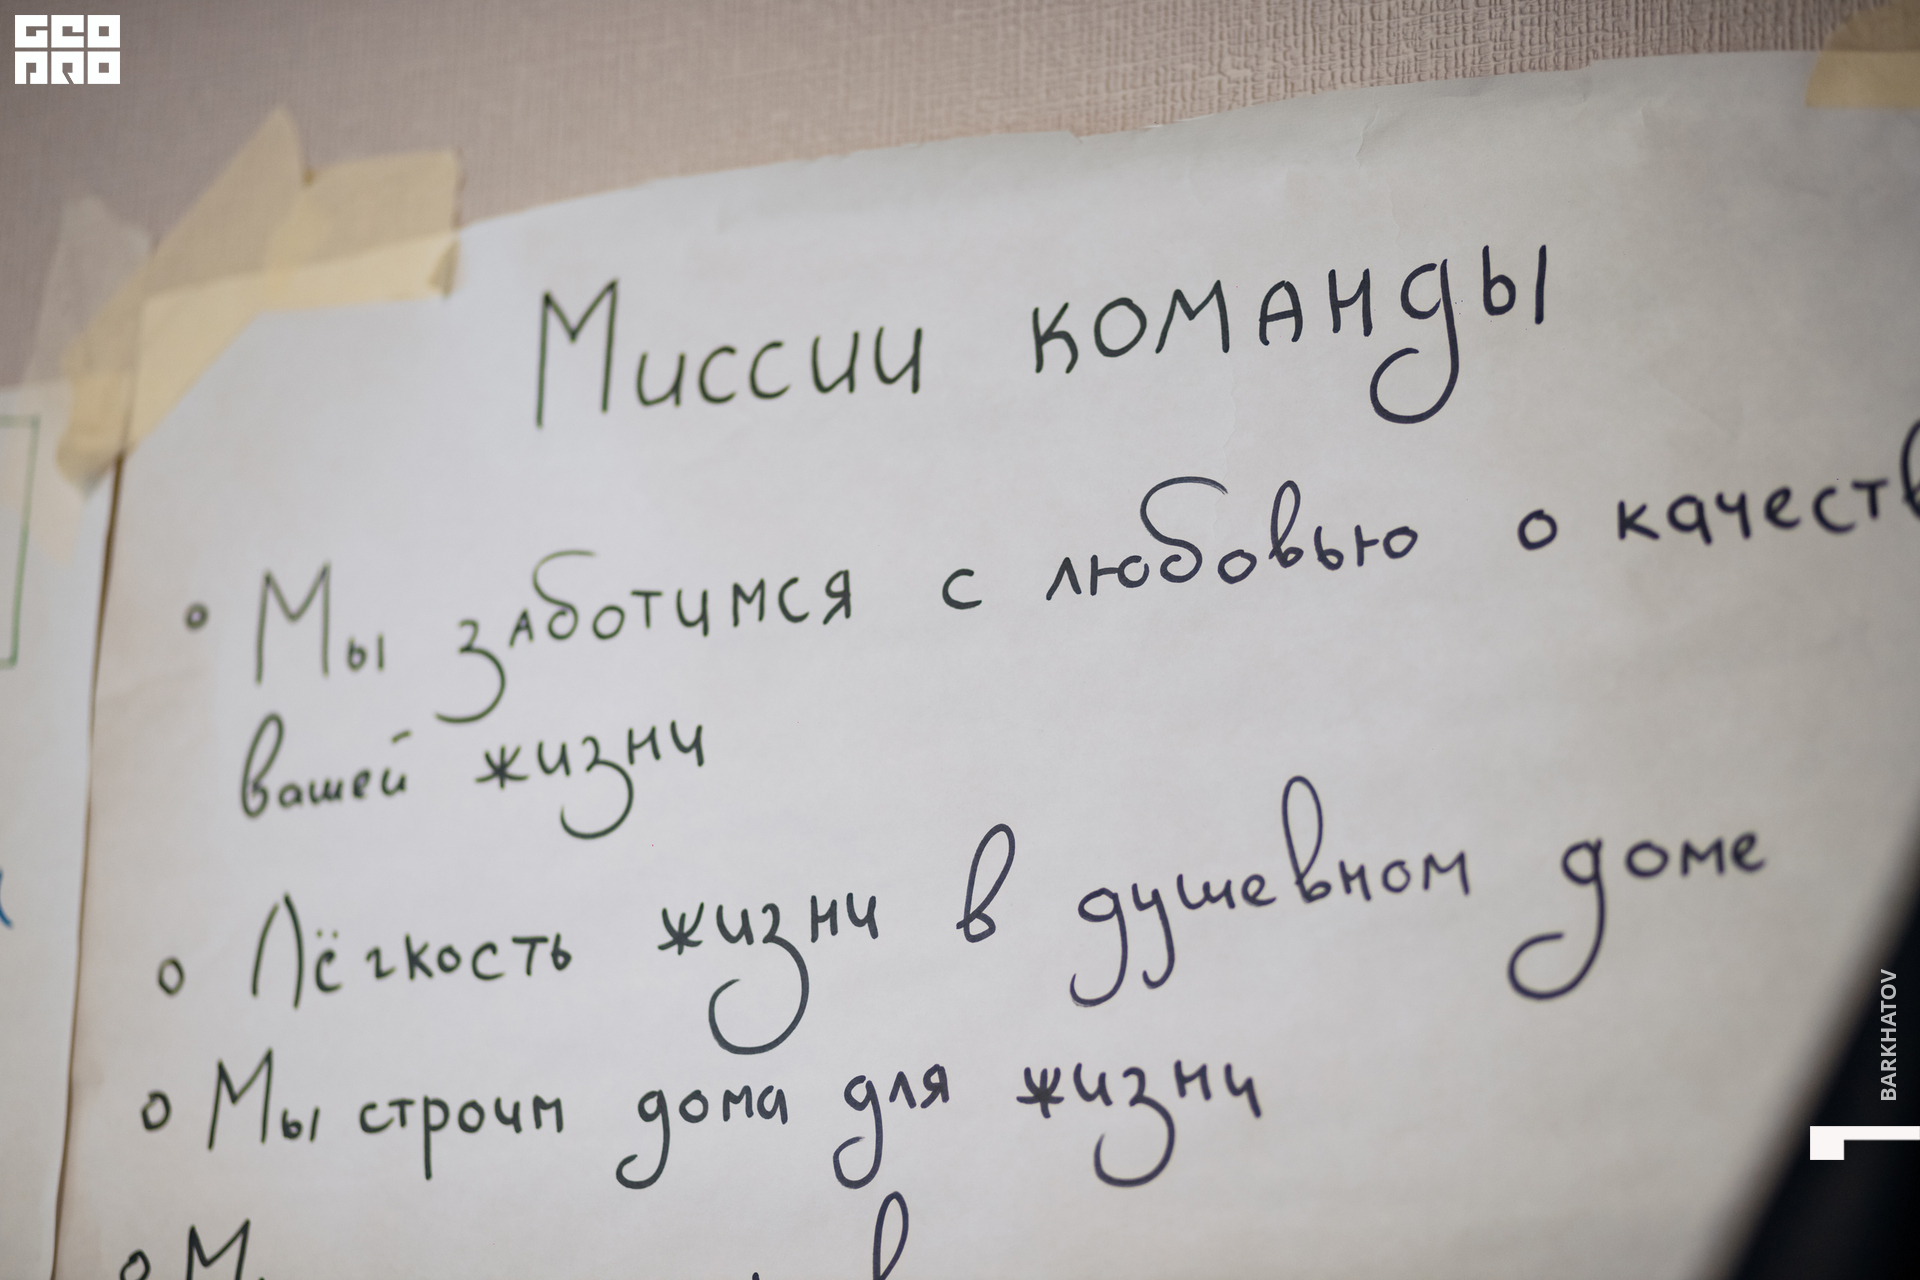 GEO
PRO
Миссии команды
Мы заботимся с любовью о
вашей жизни
Лёгкость жизни в душевном доме
Мы строим дома для жизни
BARKHATOV